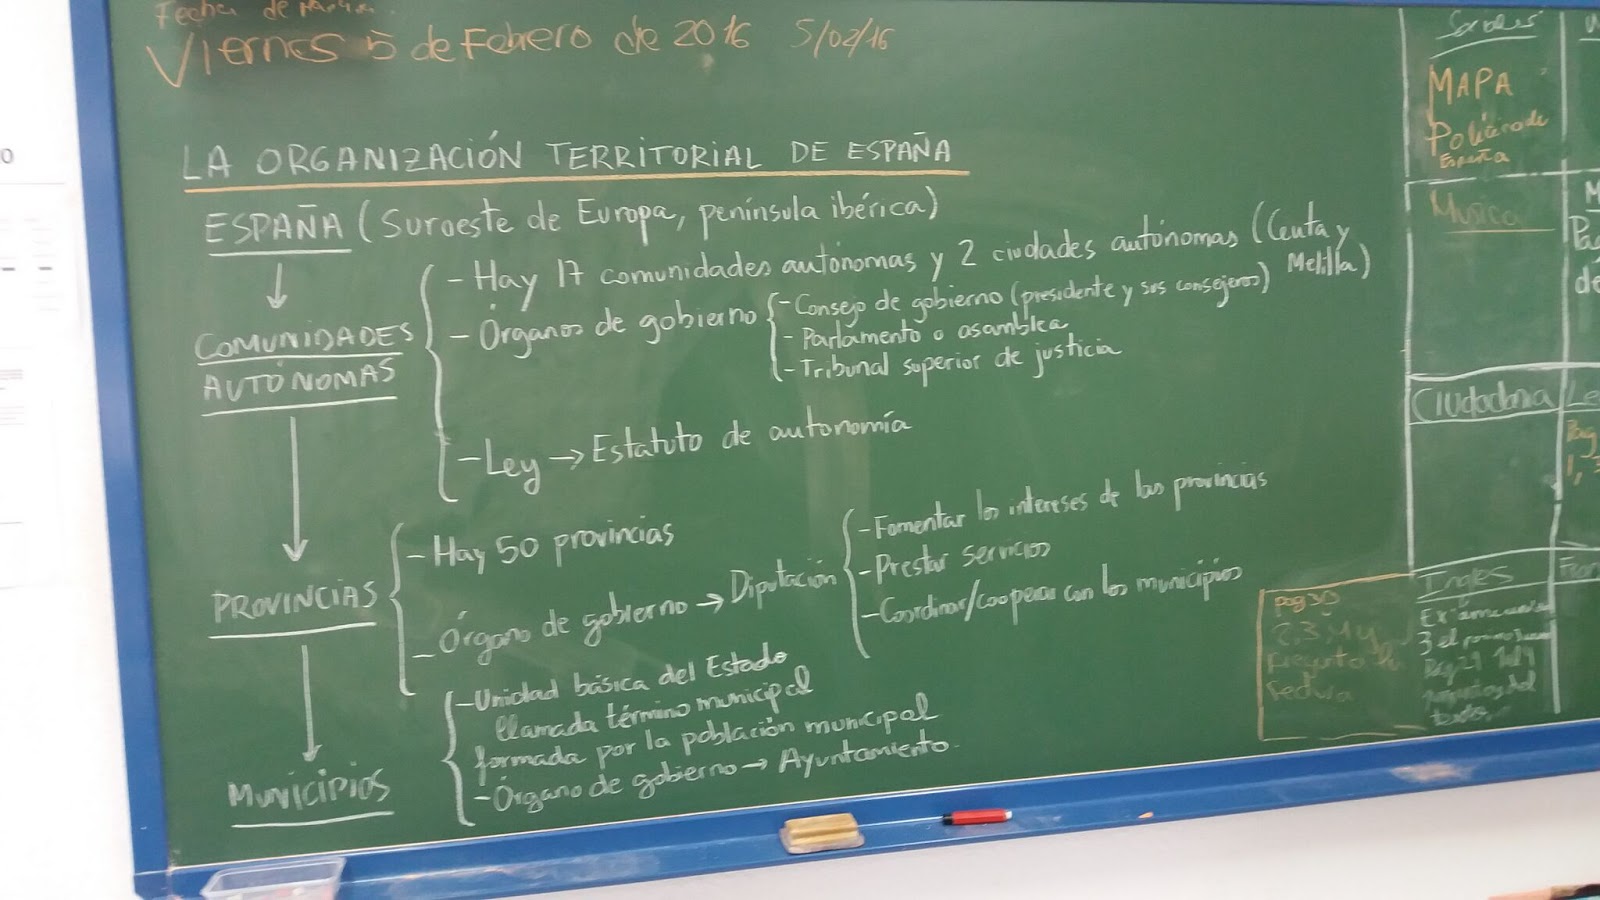 Fecha de
Viernes 5 de Febrero de 2016 5/02/16
LA ORGANIZACIÓN TERRITORIAL DE ESPAÑA
ESPAÑA (Suroeste de Europa, península ibérica)
COMUNIDADES
AUTÓNOMAS
- Hay 17 comunidades autónomas y 2 ciudades autónomas (Ceuta y
Melilla)
- Órganos de gobierno
- Consejo de gobierno (presidente y sus consejeros)
- Parlamento o asamblea
- Tribunal superior de justicia
- Ley → Estatuto de autonomía
PROVINCIAS
- Hay 50 provincias
- Órgano de gobierno → Diputación
- Fomentar los intereses de las provincias
- Prestar servicios
- Coordinar/cooperar con los municipios
MUNICIPIOS
- Unidad básica del Estado
llamada término municipal
formada por la población municipal
- Órgano de gobierno → Ayuntamiento.
Sociales
MAPA
España
Musica
Ciudadania
Ingles
3 el
Pag 21
pag 30